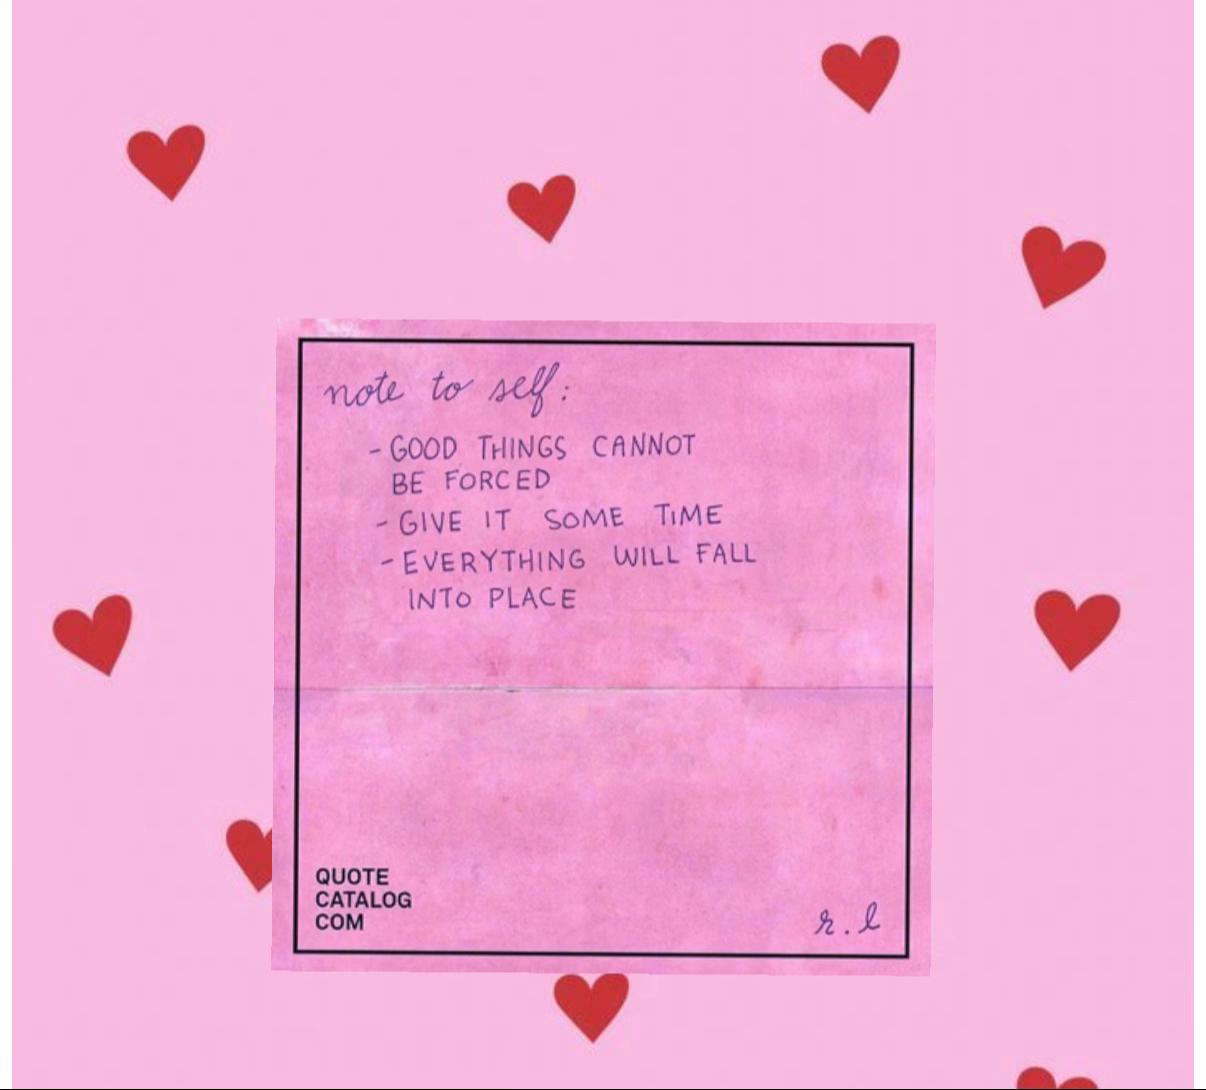 note to self:
- GOOD THINGS CANNOT
BE FORCED
- GIVE IT SOME TIME
- EVERYTHING WILL FALL
INTO PLACE
QUOTE
CATALOG
COM
r.l